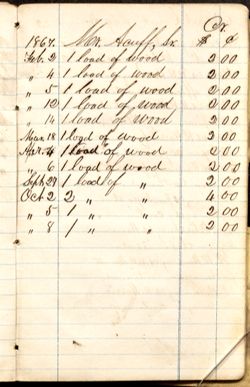 Dr.
1867. Mr. Hauff, Sr. $ ¢
Feb. 2 1 load of wood 2 00
" 4 1 load of wood 2 00
" 5 1 load of wood 2 00
" 12 1 load of wood 2 00
" 14 1 load of wood 2 00
Mar. 18 1 load of wood 2 00
Apr. 4 1 load of wood 2 00
" 6 1 load of wood 2 00
Sept. 29 1 load of " 2 00
Oct. 2 2 " " 4 00
" 5 1 " " 2 00
" 8 1 " " 2 00